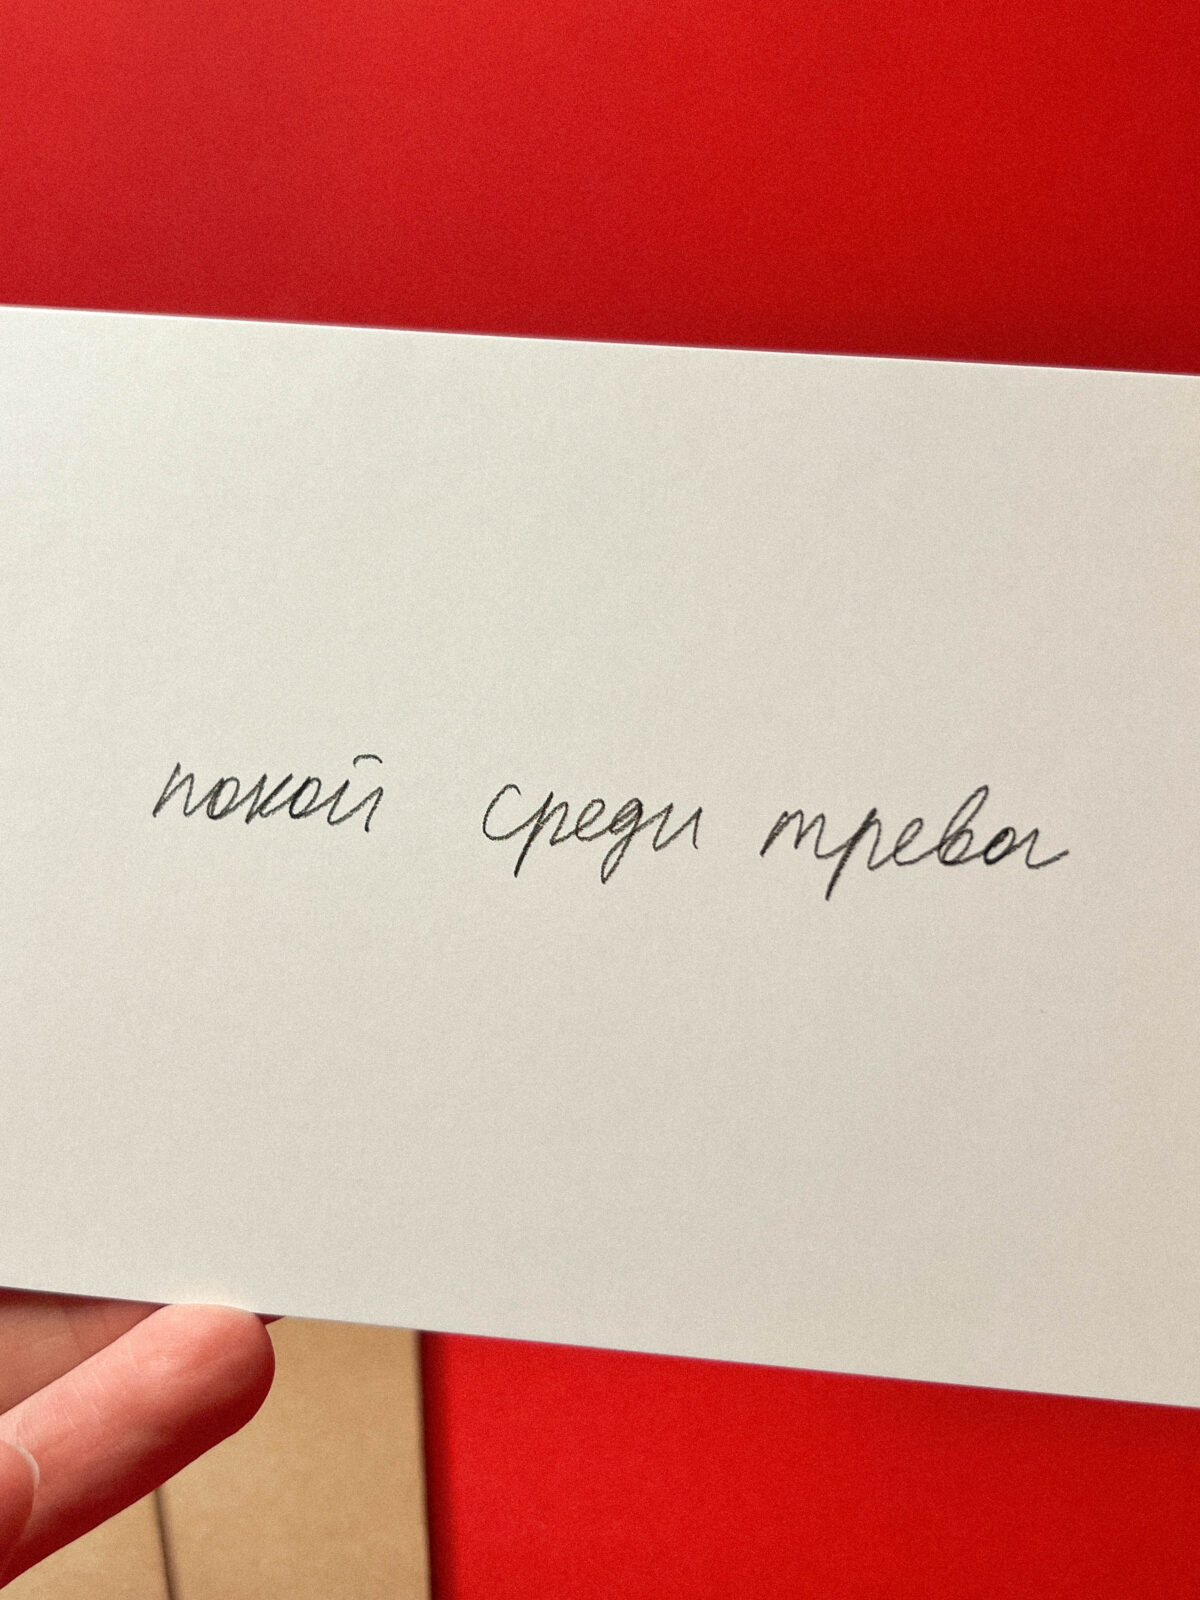 покой среди трева